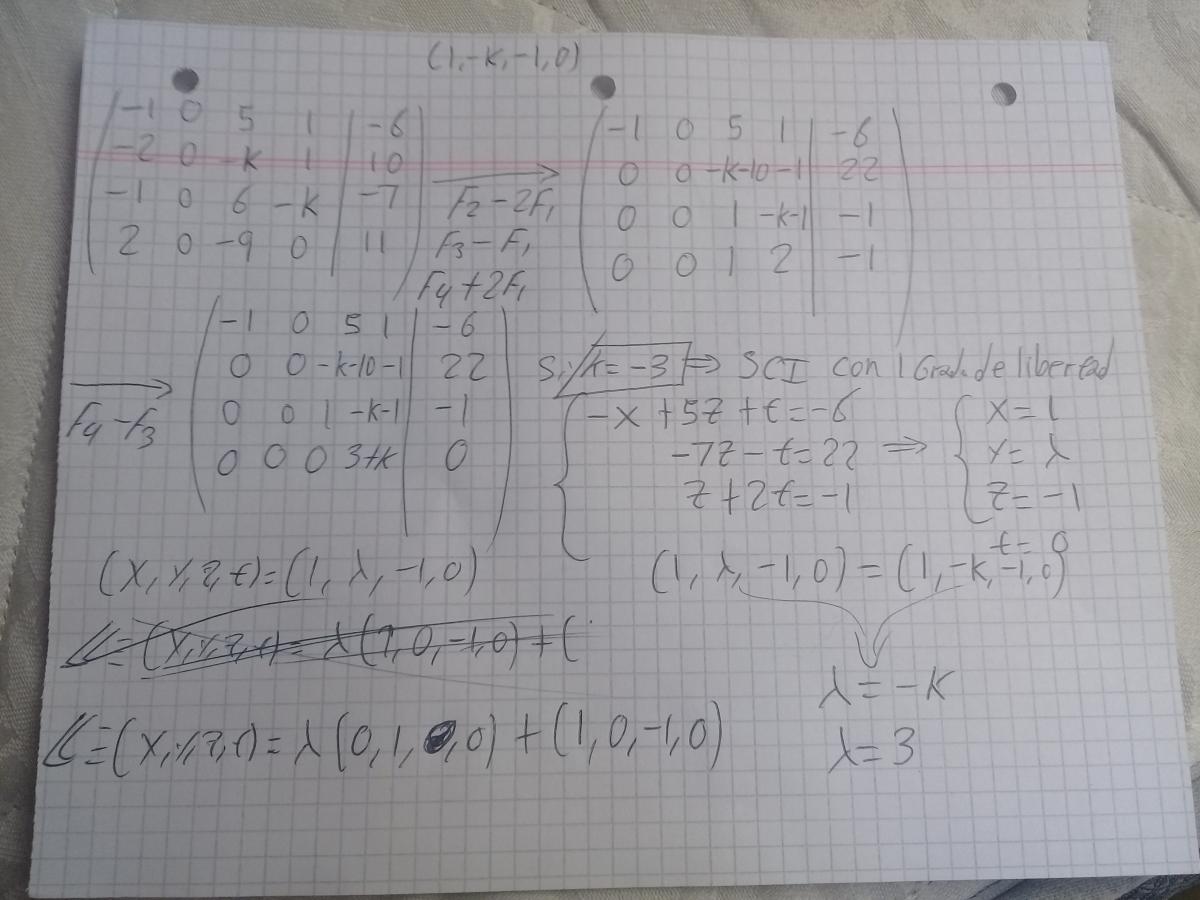 (1,-k,-1,0)
-1 0 5 1 | -6
-2 0 -k 1 | 10
-1 0 6 -k | -7
2 0 -9 0 | 11
F2-2F1
F3-F1
F4+2F1
-1 0 5 1 | -6
0 0 -k-10 -1 | 22
0 0 1 -k-1 | -1
0 0 1 2 | -1
F4-F3
-1 0 5 1 | -6
0 0 -k-10 -1 | 22
0 0 1 -k-1 | -1
0 0 0 3+k | 0
Si k=-3 ⇒ SCI con 1 Grado de libertad
-x+5z+t=-6
-7z-t=22 ⇒
z+2t=-1
x=1
y=λ
z=-1
t=0
(x,y,z,t)=(1,λ,-1,0)
(1,λ,-1,0)=(1,-k,-1,0)
≡(x,y,z,t)=λ(1,0,-1,0)+(
λ=-k
λ=3
≡(x,y,z,t)=λ(0,1,0,0)+(1,0,-1,0)